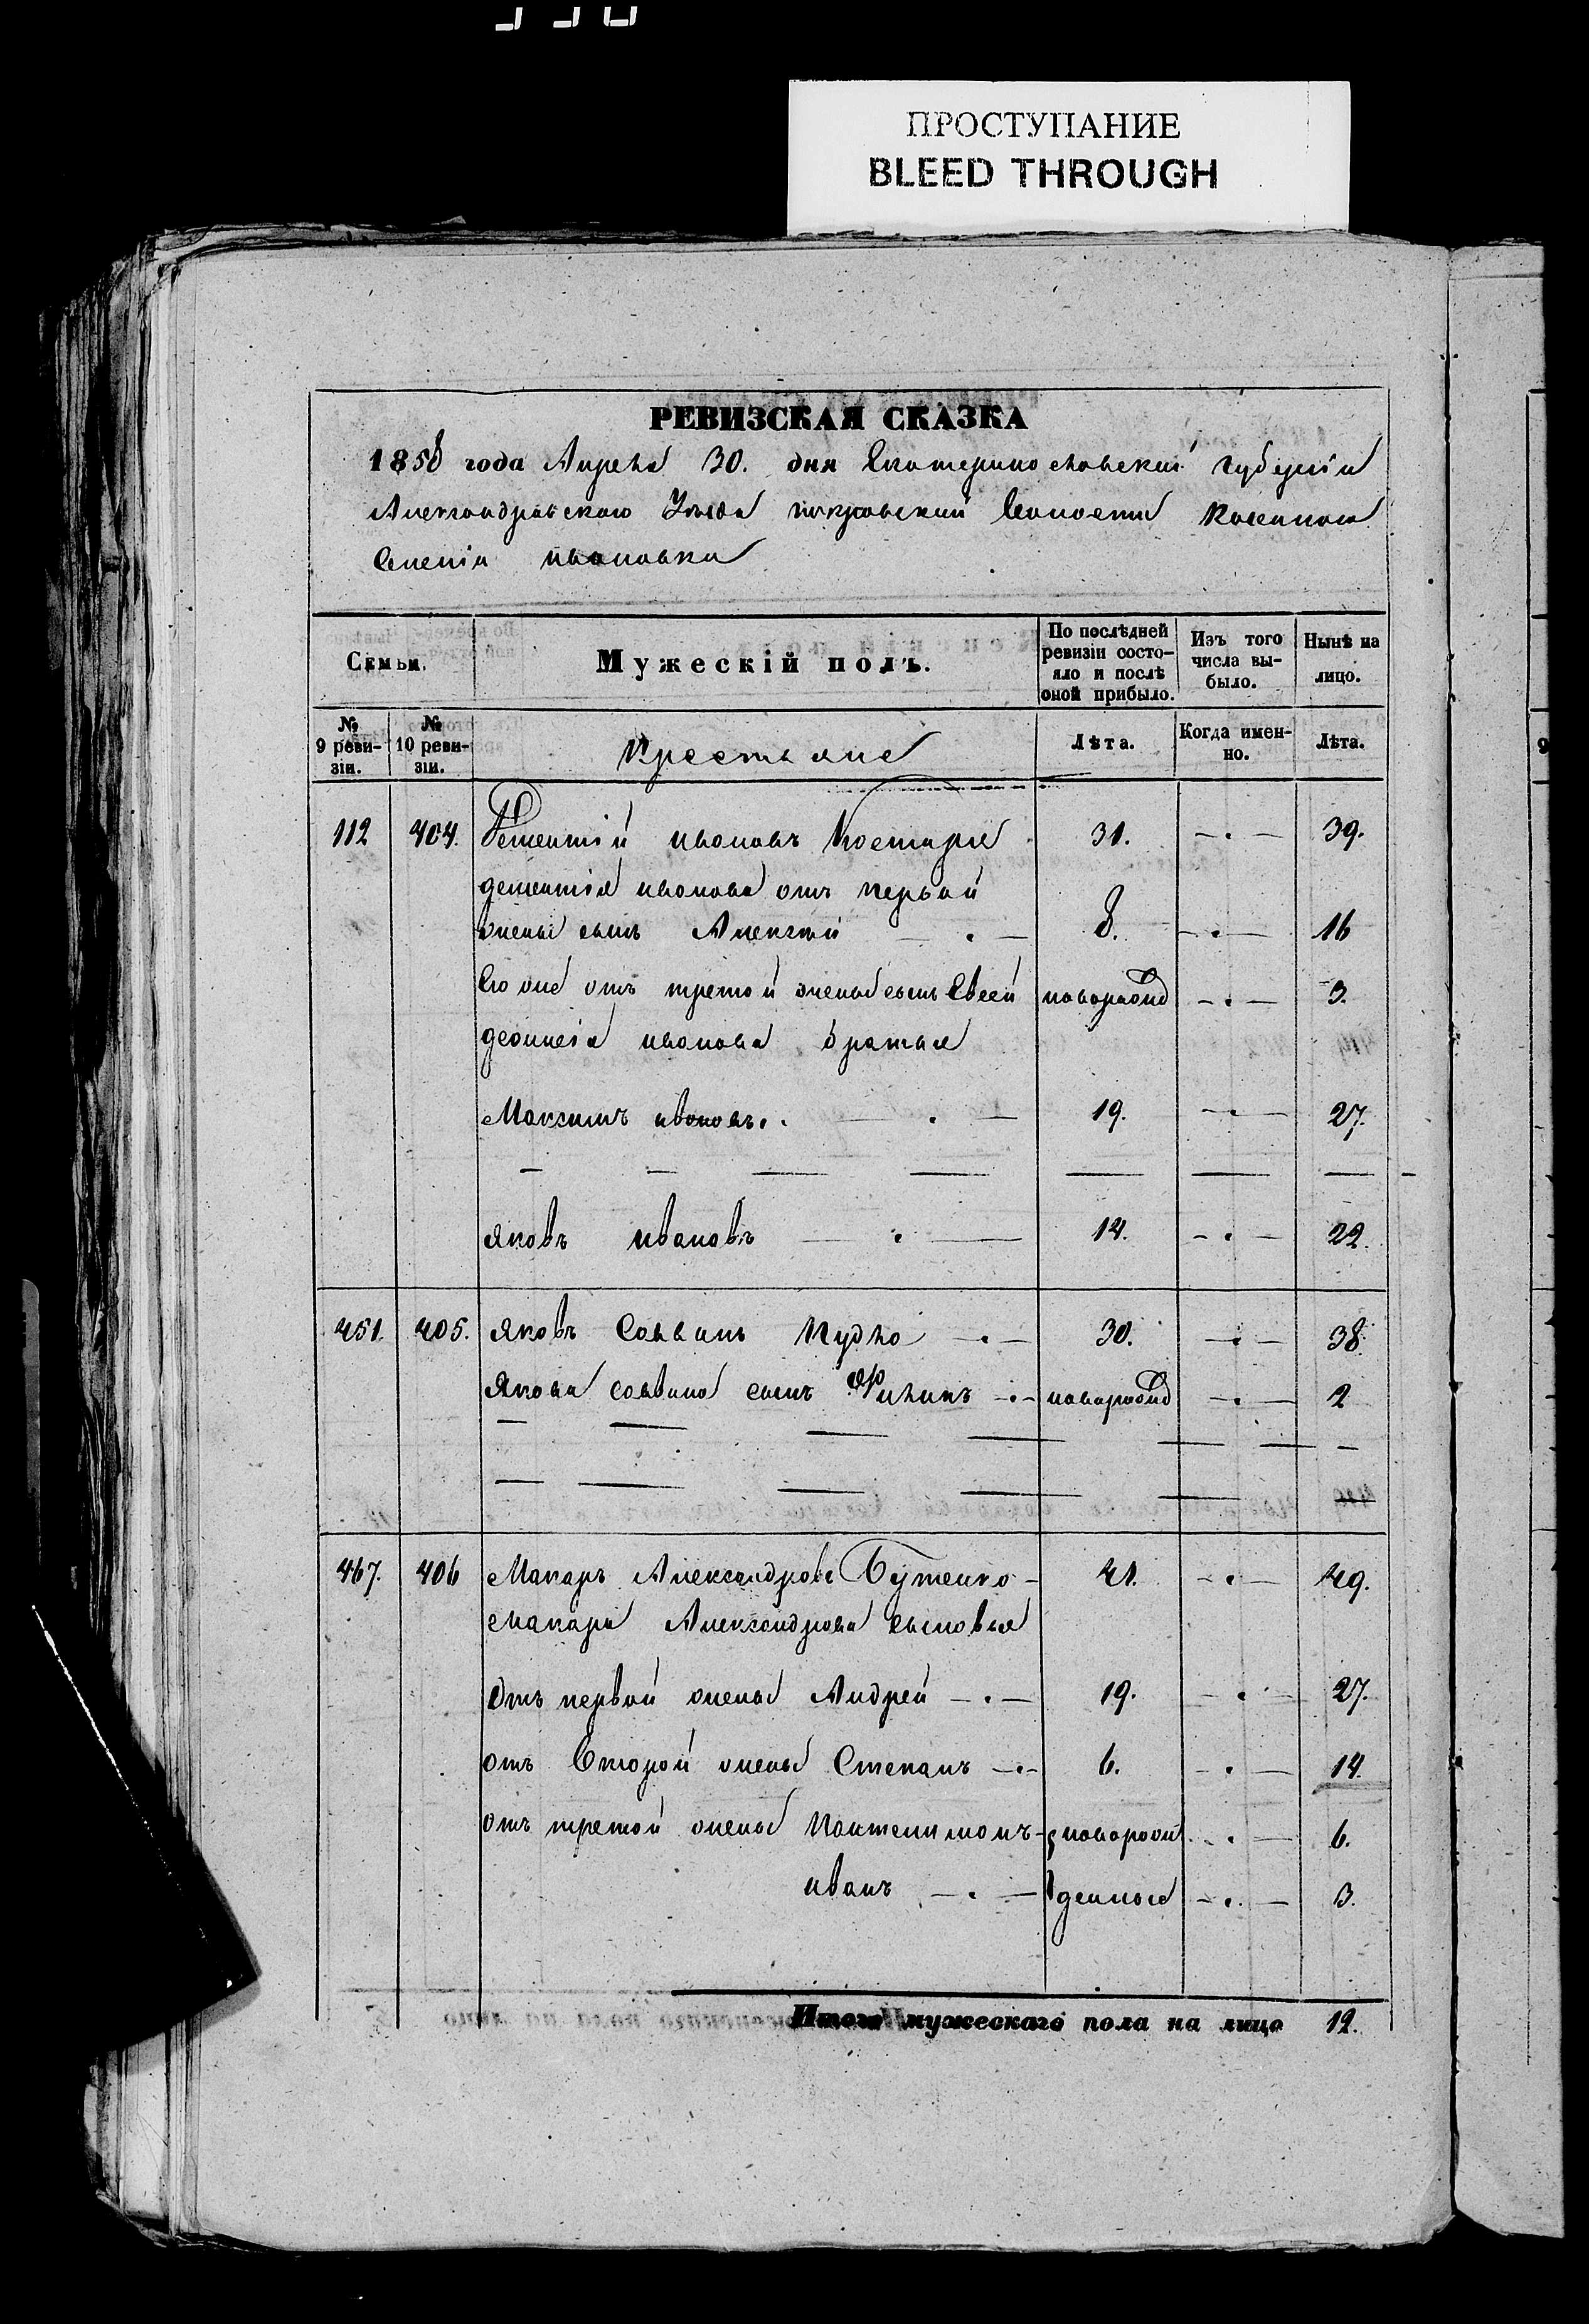 ПРОСТУПАНИЕ
BLEED THROUGH
РЕВИЗСКАЯ СКАЗКА
1858 года Апреля 30. дня Екатеринославской губернии
Александровского Уезда покровской Волости Казенного
Селенія ивановка
Семьи. Мужескій полъ. По послѣдней ревизіи состояло и послѣ оной прибыло. Изъ того числа выбыло. Нынѣ на лицо.
№ 9 ревизіи. № 10 ревизіи. Крестьяне Лѣта. Когда именно. Лѣта.
112 404. ивановъ Костыря 31. — . — 39.
иванова отъ первой
жены сынъ Алексѣй — . — 8. — . — 16
Его же отъ третой жены сынъ Евсей новорожд — . — 3.
иванова братья
Максимъ ивановъ. . — . — 19. — . — 27.
яковъ ивановъ — . — 14. — . — 22.
451. 405. яковъ Саввинъ Кудло — . — 30. — . — 38.
Якова саввина сынъ Филипъ — . — новорожд — . — 2
467. 406 Макаръ Александровъ Бутенко — 41. — . — 49.
Макара Александрова сыновья
Отъ первой жены Андрей — . — 19. — . — 27.
отъ Второй жены Степанъ — . — 6. — . — 14.
отъ третой жены Пантелимонъ — новорож . — 6.
иванъ — . — денные — . — 3.
Итого мужескаго пола на лицо 12.